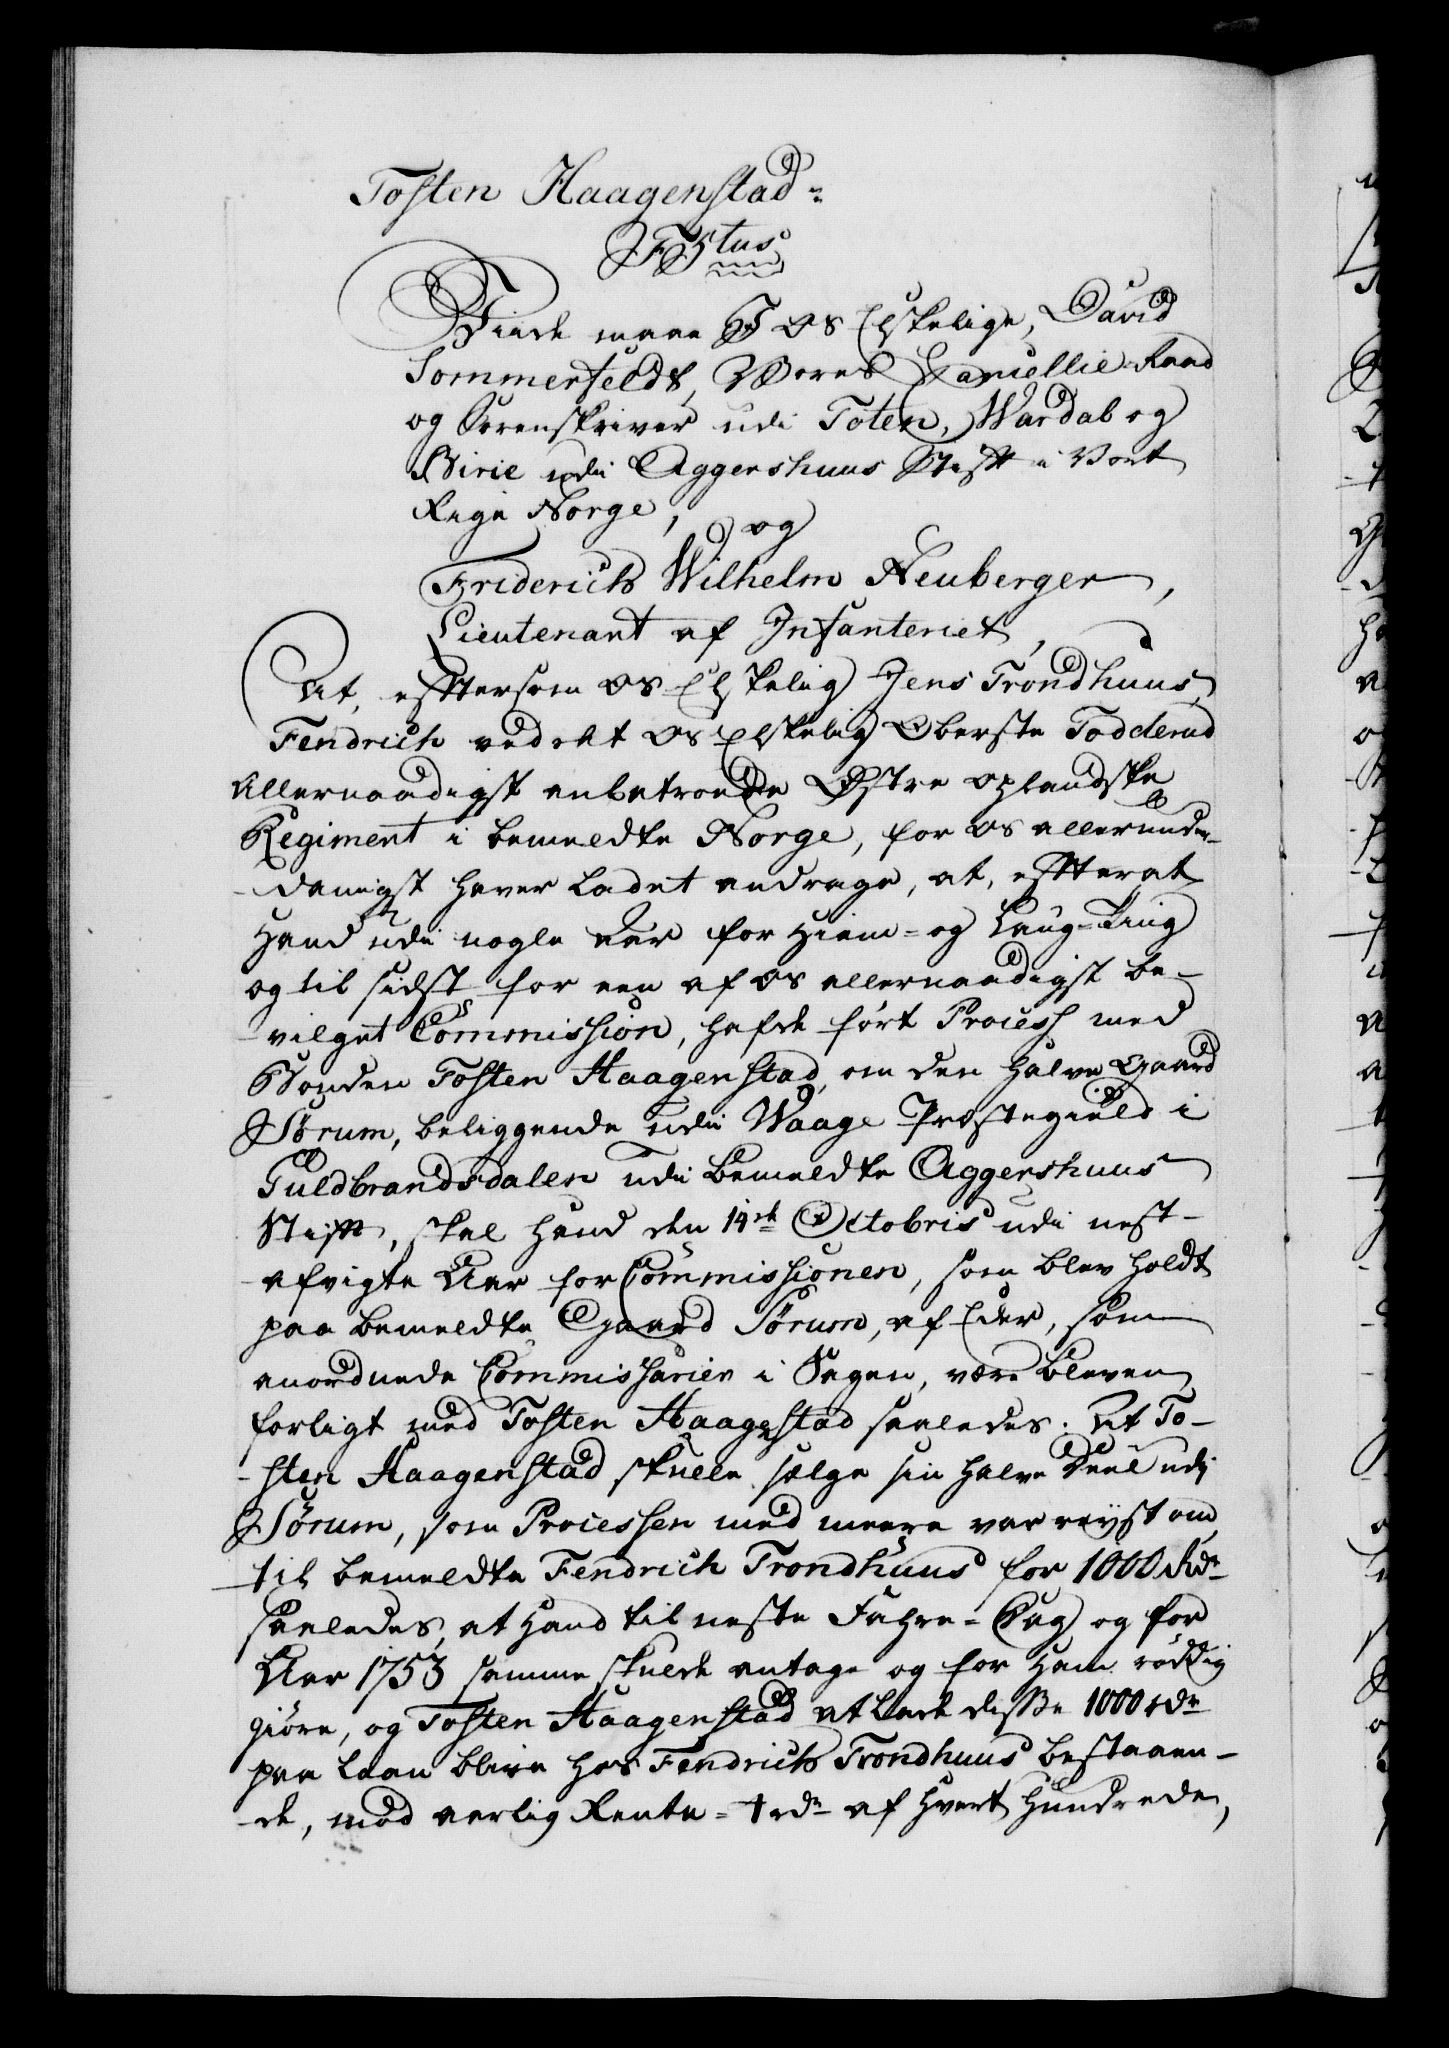 Tosten Haagenstad
F5tus
Viide maae I os Elskelige, David
Sommerfeldt, Vores Cancellie Raad
og Sorenskriver udi Toten, Wardal og
Birie udi Aggershuus Stift i Vort
Rige Norge, og
Friderich Wilhelm Neuberger,
Lieutenant af Infanteriet,
At, efftersom os Elskelig Jens Trondhuus,
Fendrich ved det os Elskelig Oberste Todderud
allernaadigst anbetroede Østre oplandske
Regiment i bemeldte Norge, for os allerunder-
-danigst haver ladet andrage, at, effterat
Hand udi nogle Aar for Hiem- og Laug-Ting
og til sidst for een af os allernaadigst be-
-vilget Commission, hafde ført Process med
Bonden Tosten Haagenstad, om den halve Gaard
Sørum, beliggende udi Waage Præstegield i
Guldbrandsdalen udi bemeldte Aggershuus
Stift, skal Hand den 14de Octobris udi nest-
-afvigte Aar for Commissionen, som blev holdt
paa bemeldte Gaard Sørum, af Eder, som
anordnede Commissarier i Sagen, være bleven
forligt med Tosten Haagenstad saaledes: At To-
-sten Haagenstad skulle sælge sin halve Deel udi
Sørum, som Processen med meere var reyst om,
til bemeldte Fendrich Trondhuus for 1000 Rdr
saaledes, at Hand til neste Fahre-Dag og for
Aar 1753 samme skulde antage og for ham røddig
giøre, og Tosten Haagenstad at lade disse 1000 rdr
paa Laan blive hos Fendrich Trondhuus bestaaen-
-de, mod aarlig Rente = 4 rdr af hvert Hundrede,